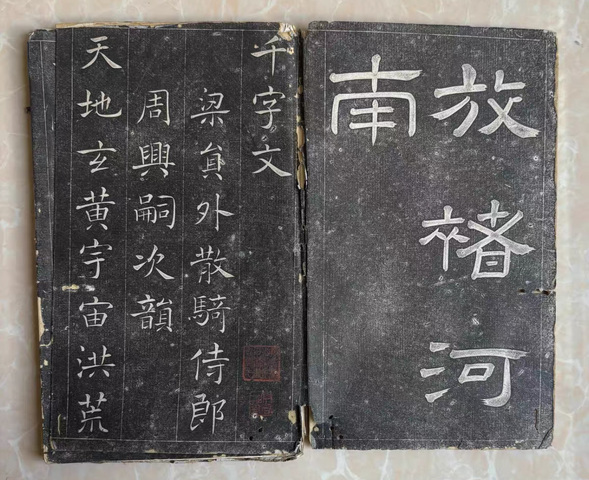 放褚河
南
千字文
梁貟外散騎侍郎
周興嗣次韻
天地玄黃宇宙洪荒